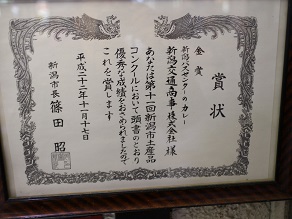 賞状
金賞
新潟バスセンターのカレー
新潟交通商事株式会社様
あなたは第十一回新潟市土産品
コンクールにおいて頭書のとおり
優秀な成績をおさめられましたので
これを賞します
平成二十二年十一月十七日
新潟市長 篠田 昭